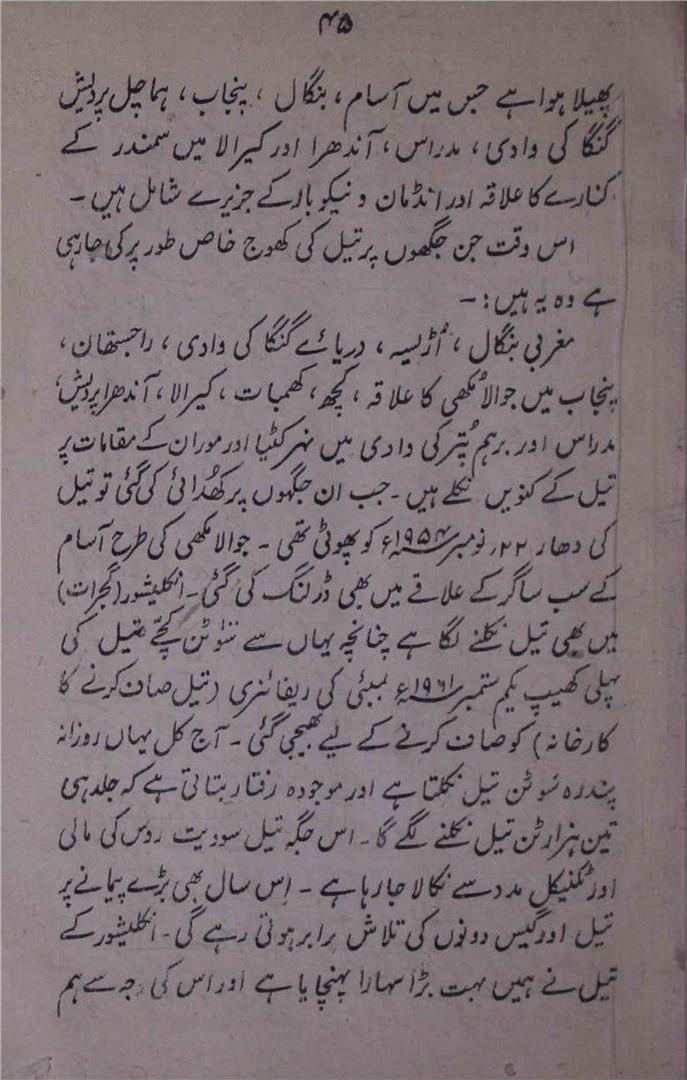 ۴۵
پھیلا ہوا ہے جس میں آسام، بنگال، پنجاب، ہماچل پردیش
گنگا کی وادی، مدراس، آندھرا اور کیرالا میں سمندر کے
کنارے کا علاقہ اور انڈمان و نیکوبار کے جزیرے شامل ہیں۔
اس وقت جن جگھوں پر تیل کی کھوج خاص طور پر کی جارہی
ہے وہ یہ ہیں:۔
مغربی بنگال، اُڑیسہ، دریائے گنگا کی وادی، راجستھان،
پنجاب میں جوالا مُکھی کا علاقہ، کچھ، کھمبات، کیرالا، آندھرا پردیش،
مدراس اور برہم پُتر کی وادی میں نہر کٹیا اور موران کے مقامات پر
تیل کے کنویں نکلے ہیں۔ جب ان جگہوں پر کھُدائی کی گئی تو تیل
کی دھار ۲۲؍ نومبر ۱۹۵۴ء کو پھوٹی تھی۔ جوالا مکھی کی طرح آسام
کے سب ساگر کے علاقے میں بھی ڈرلنگ کی گئی۔ انکلیشور (گجرات)
میں بھی تیل نکلنے لگا ہے چنانچہ یہاں سے سَوٹن کچّے تیل کی
پہلی کھیپ یکم ستمبر ۱۹۶۱ء بمبئی کی ریفائنری (تیل صاف کرنے کا
کارخانہ) کو صاف کرنے کے لیے بھیجی گئی۔ آج کل یہاں روزانہ
پندرہ سَو ٹن تیل نکلتا ہے اور موجودہ رفتار بتاتی ہے کہ جلد ہی
تین ہزار ٹن تیل نکلنے لگے گا۔ اس جگہ تیل سوویت روس کی مالی
اور ٹکنیکل مدد سے نکالا جارہا ہے۔ اِس سال بھی بڑے پیمانے پر
تیل اور گیس دونوں کی تلاش برابر ہوتی رہے گی۔ انکلیشور کے
تیل نے ہمیں بہت بڑا سہارا پہنچایا ہے اور اس کی وجہ سے ہم